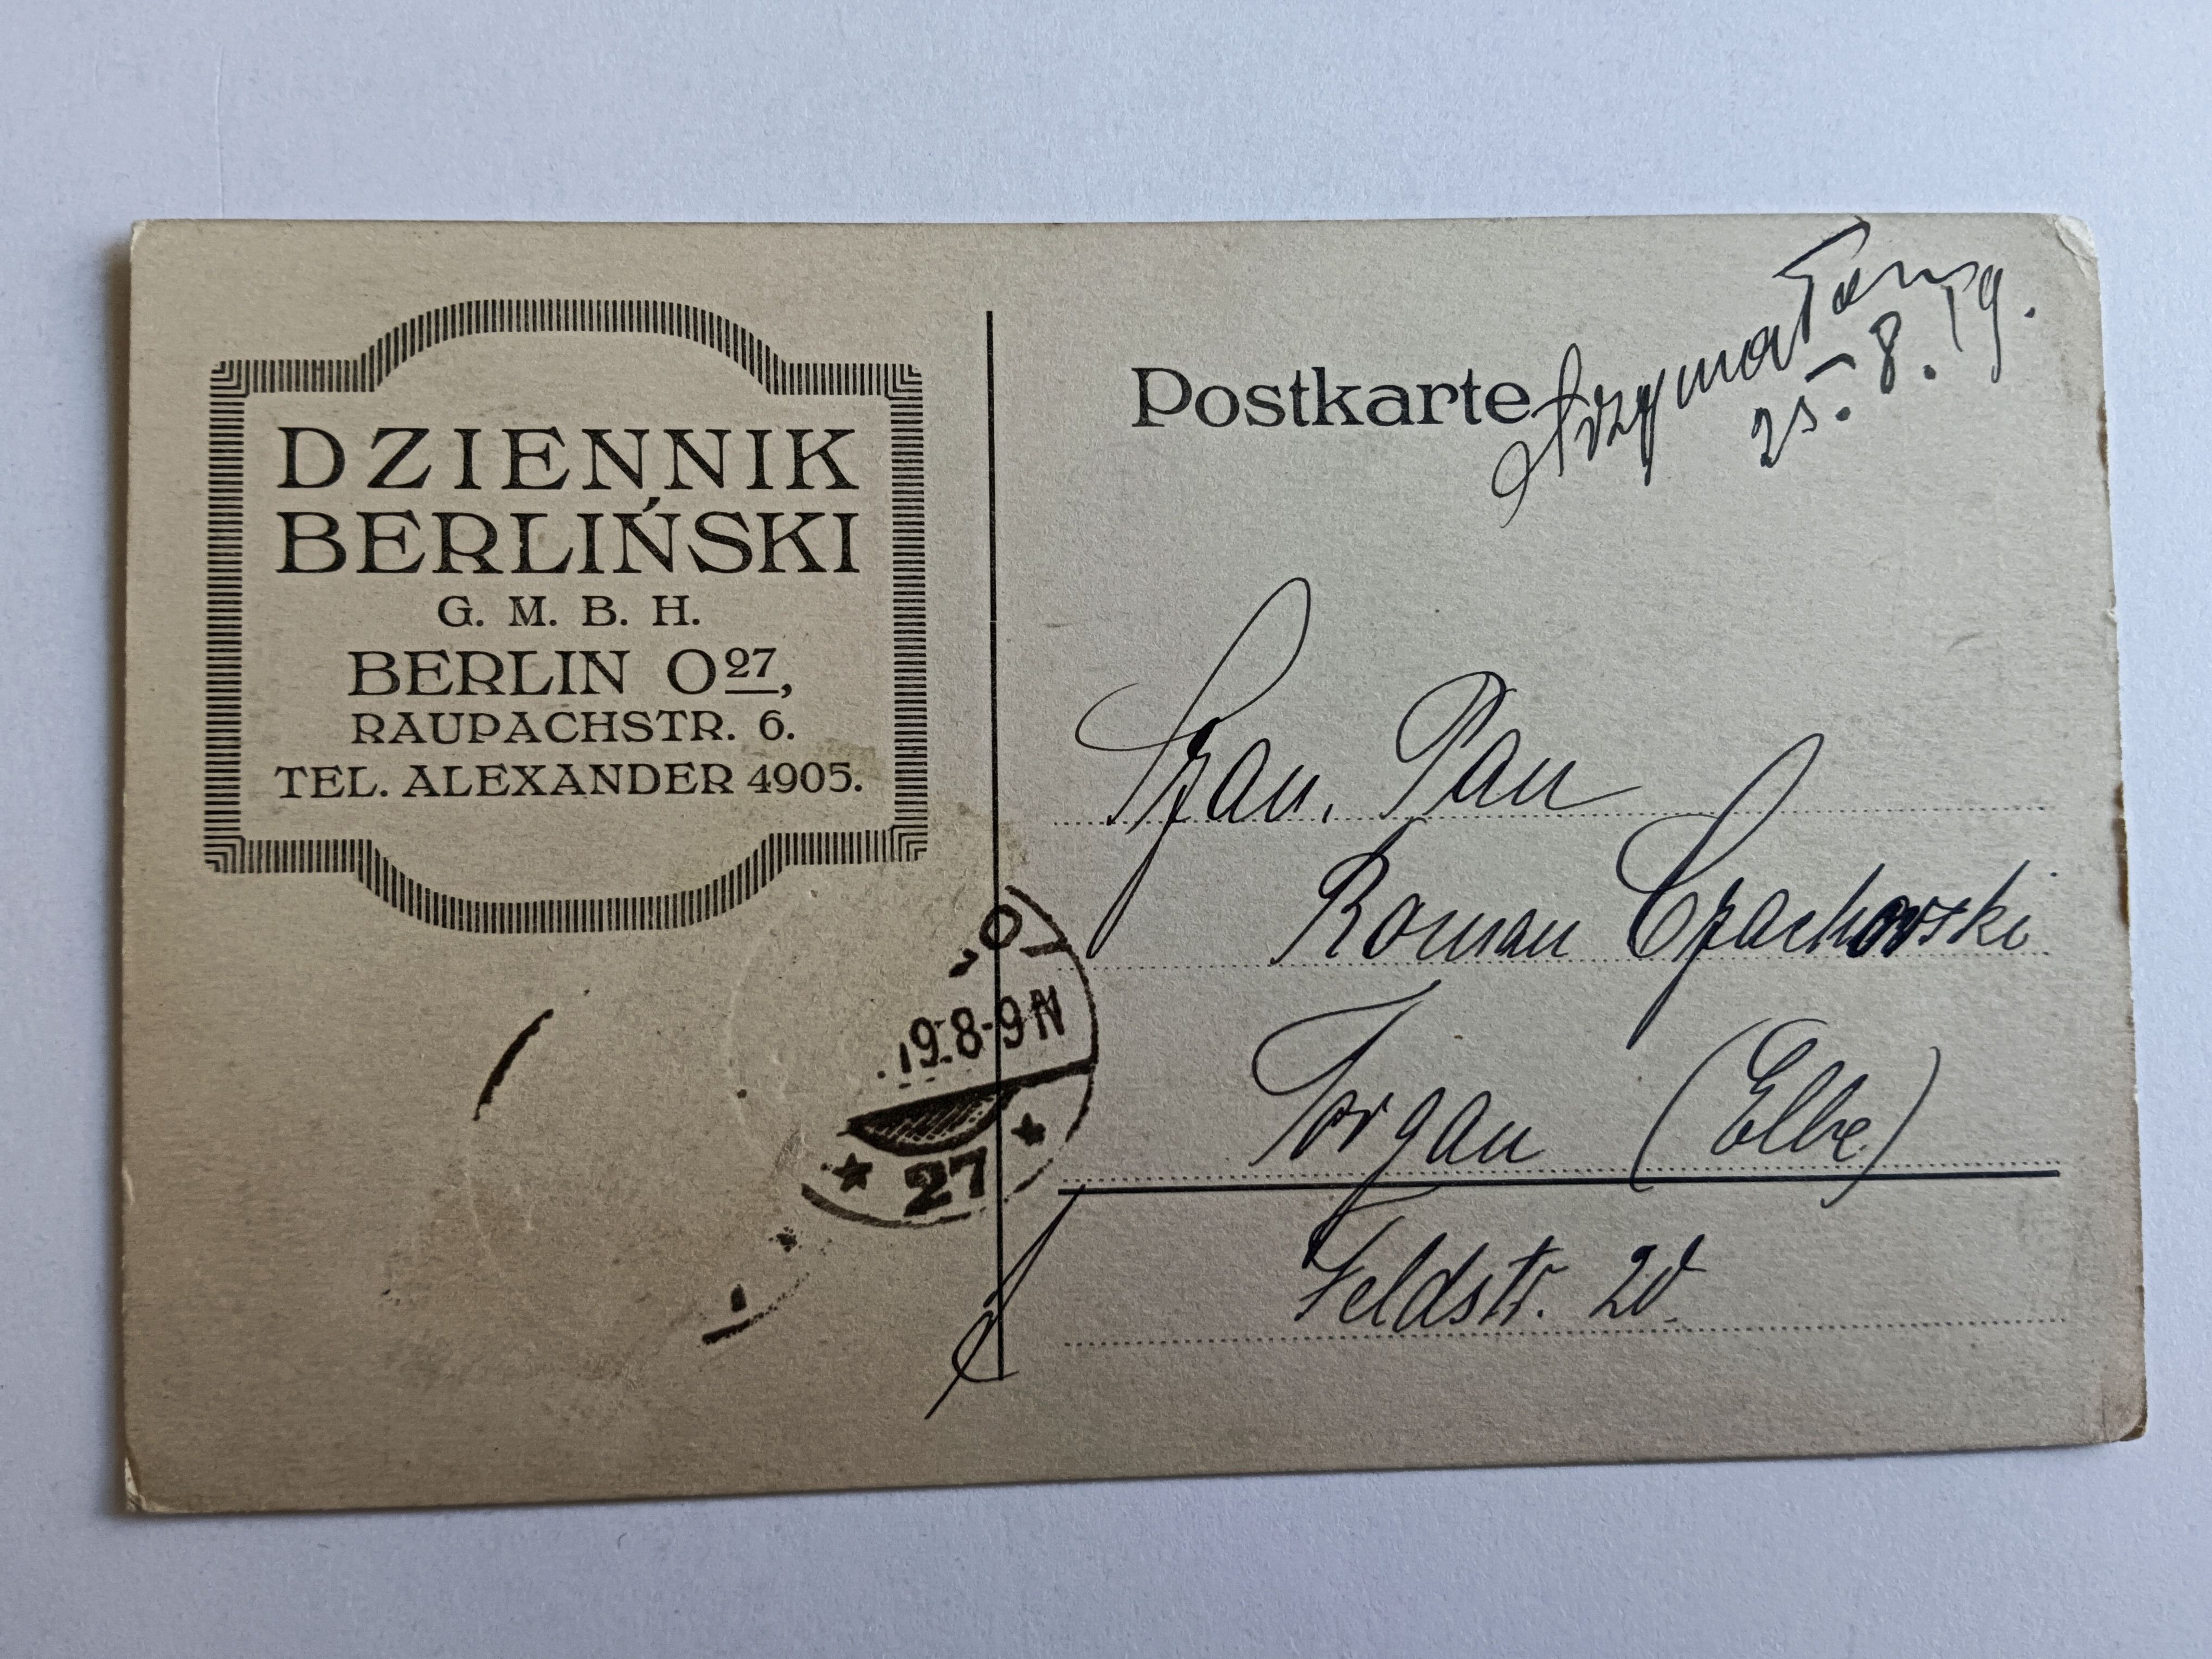 DZIENNIK
BERLIŃSKI
G. M. B. H.
BERLIN O27,
RAUPACHSTR. 6.
TEL. ALEXANDER 4905.
Postkarte
25. 8. 19.
Szan. Pan
Roman Czachowski
Torgau (Elbe)
Feldstr. 20.
19.8-9N
* 27 *